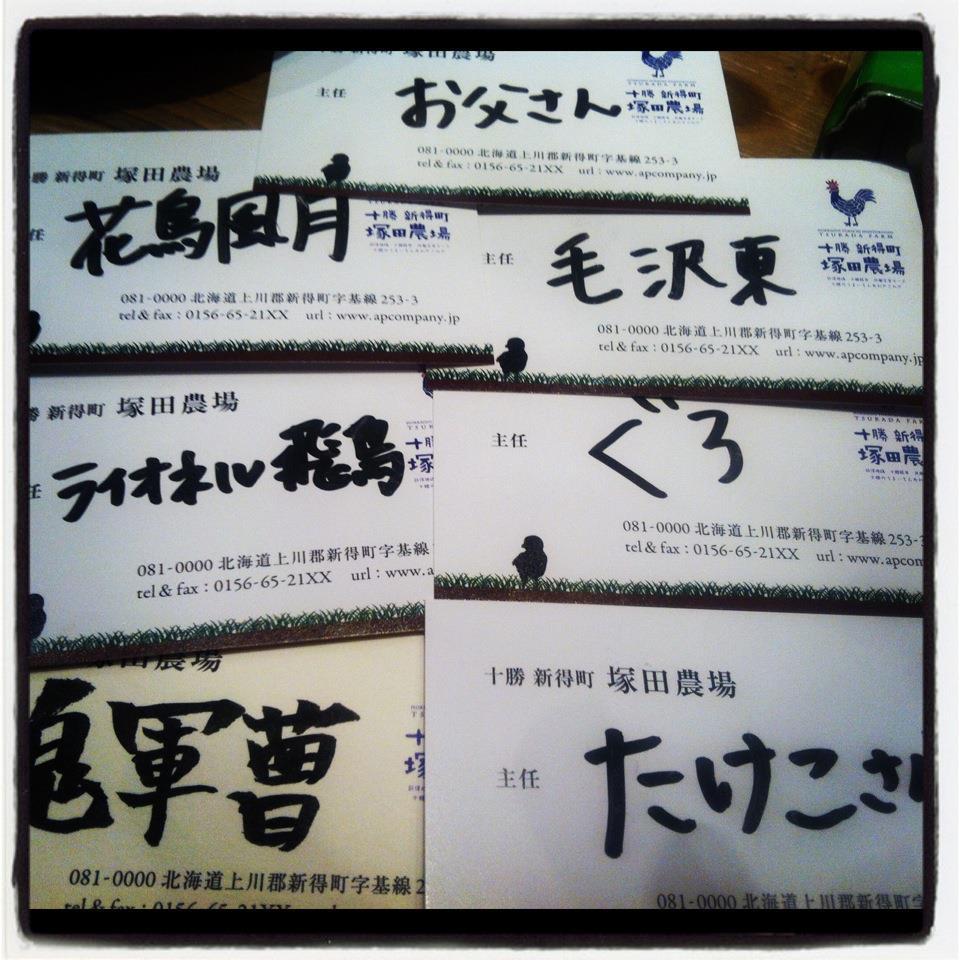 十勝 新得町 塚田農場
主任
お父さん
TSUKADA FARM
十勝 新得町
塚田農場
081-0000 北海道上川郡新得町字基線 253-3
tel & fax : 0156-65-21XX url : www.apcompany.jp
勝 新得町 塚田農場
任
花鳥風月
十勝 新得町
塚田農場
081-0000 北海道上川郡新得町字基線 253-3
tel & fax : 0156-65-21XX url : www.apcompany.jp
主任
毛沢東
TSUKADA FARM
十勝 新得町
塚田農場
081-0000 北海道上川郡新得町字基線 253-3
tel & fax : 0156-65-21XX url : www.apcompany.jp
勝 新得町 塚田農場
任
ライオネル飛鳥
081-0000 北海道上川郡新得町字基線
tel & fax : 0156-65-21XX url : www.a
主任
ぐろ
TSUKADA FARM
十勝 新得
塚田農
081-0000 北海道上川郡新得町字基線 253-
tel & fax : 0156-65-21XX url : www.apcom
塚田農場
鬼軍曹
081-0000 北海道上川郡新得町字基線 2
tel & fax : 0156-65-21XX
十勝 新得町 塚田農場
主任
たけこさん
081-0000 北海道上川郡新得町字